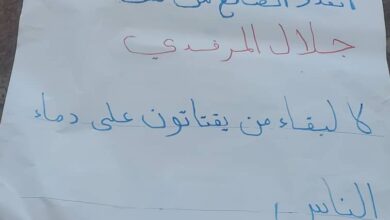 جلال المرفدي
كا لبقاء من يقتاتون على دماء
الناس